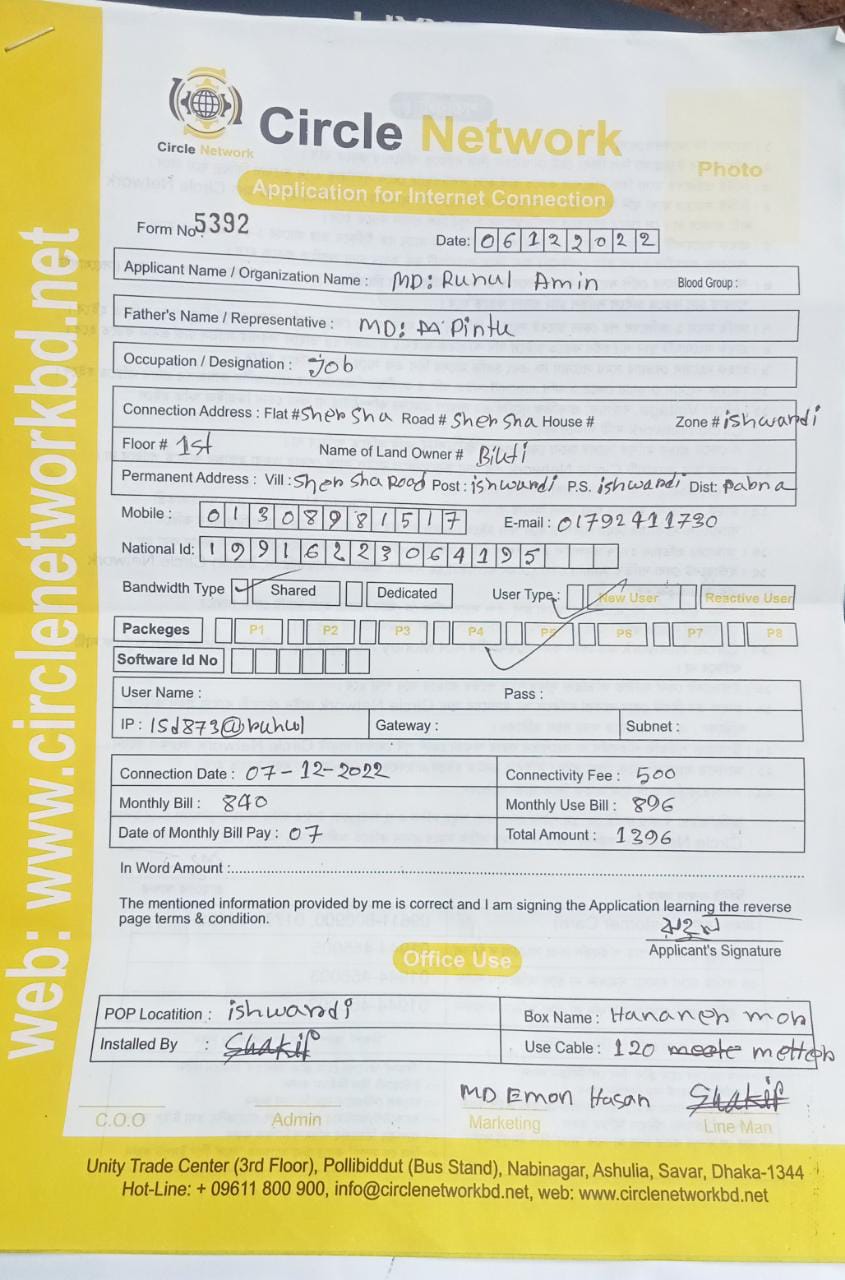 Circle Network
Circle Network
Photo
Application for Internet Connection
Form No. 5392
Date: 06122022
Applicant Name / Organization Name : MD: Ruhul Amin Blood Group :
Father's Name / Representative : MD: Pintu
Occupation / Designation : Job
Connection Address : Flat # Sher Sha Road # Sher Sha House # Zone # ishwardi
Floor # 1st Name of Land Owner # Bikti
Permanent Address : Vill : Sher Sha Road Post : ishwardi P.S. ishwardi Dist: Pabna
Mobile : 01308981517 E-mail : 01792411730
National Id: 19916223064195
Bandwidth Type Shared Dedicated User Type : New User Reactive User
Packeges P1 P2 P3 P4 P5 P6 P7 P8
Software Id No
User Name : Pass :
IP : 1sd873@ruhul Gateway : Subnet :
Connection Date : 07-12-2022 Connectivity Fee : 500
Monthly Bill : 840 Monthly Use Bill : 896
Date of Monthly Bill Pay : 07 Total Amount : 1396
In Word Amount :
The mentioned information provided by me is correct and I am signing the Application learning the reverse
page terms & condition.
Applicant's Signature
Office Use
POP Locatition : ishwardi Box Name : Hananer mor
Installed By : Shakif Use Cable : 120 metter
MD Emon Hasan Shakif
C.O.O Admin Marketing Line Man
Unity Trade Center (3rd Floor), Pollibiddut (Bus Stand), Nabinagar, Ashulia, Savar, Dhaka-1344
Hot-Line: + 09611 800 900, info@circlenetworkbd.net, web: www.circlenetworkbd.net
web: www.circlenetworkbd.net